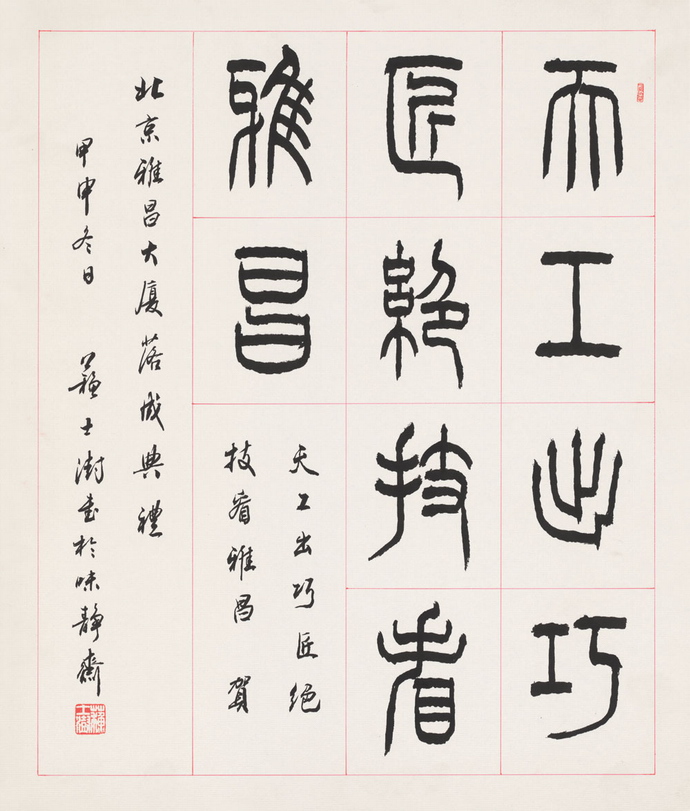 天工出巧
匠絕技看
雅昌
天工出巧匠绝
技看雅昌 賀
北京雅昌大廈落成典禮
甲申冬日 蘇士澍書於味靜齋